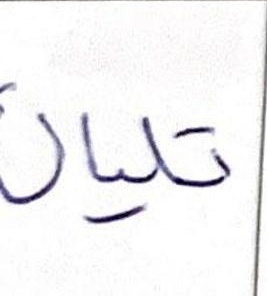 تليال